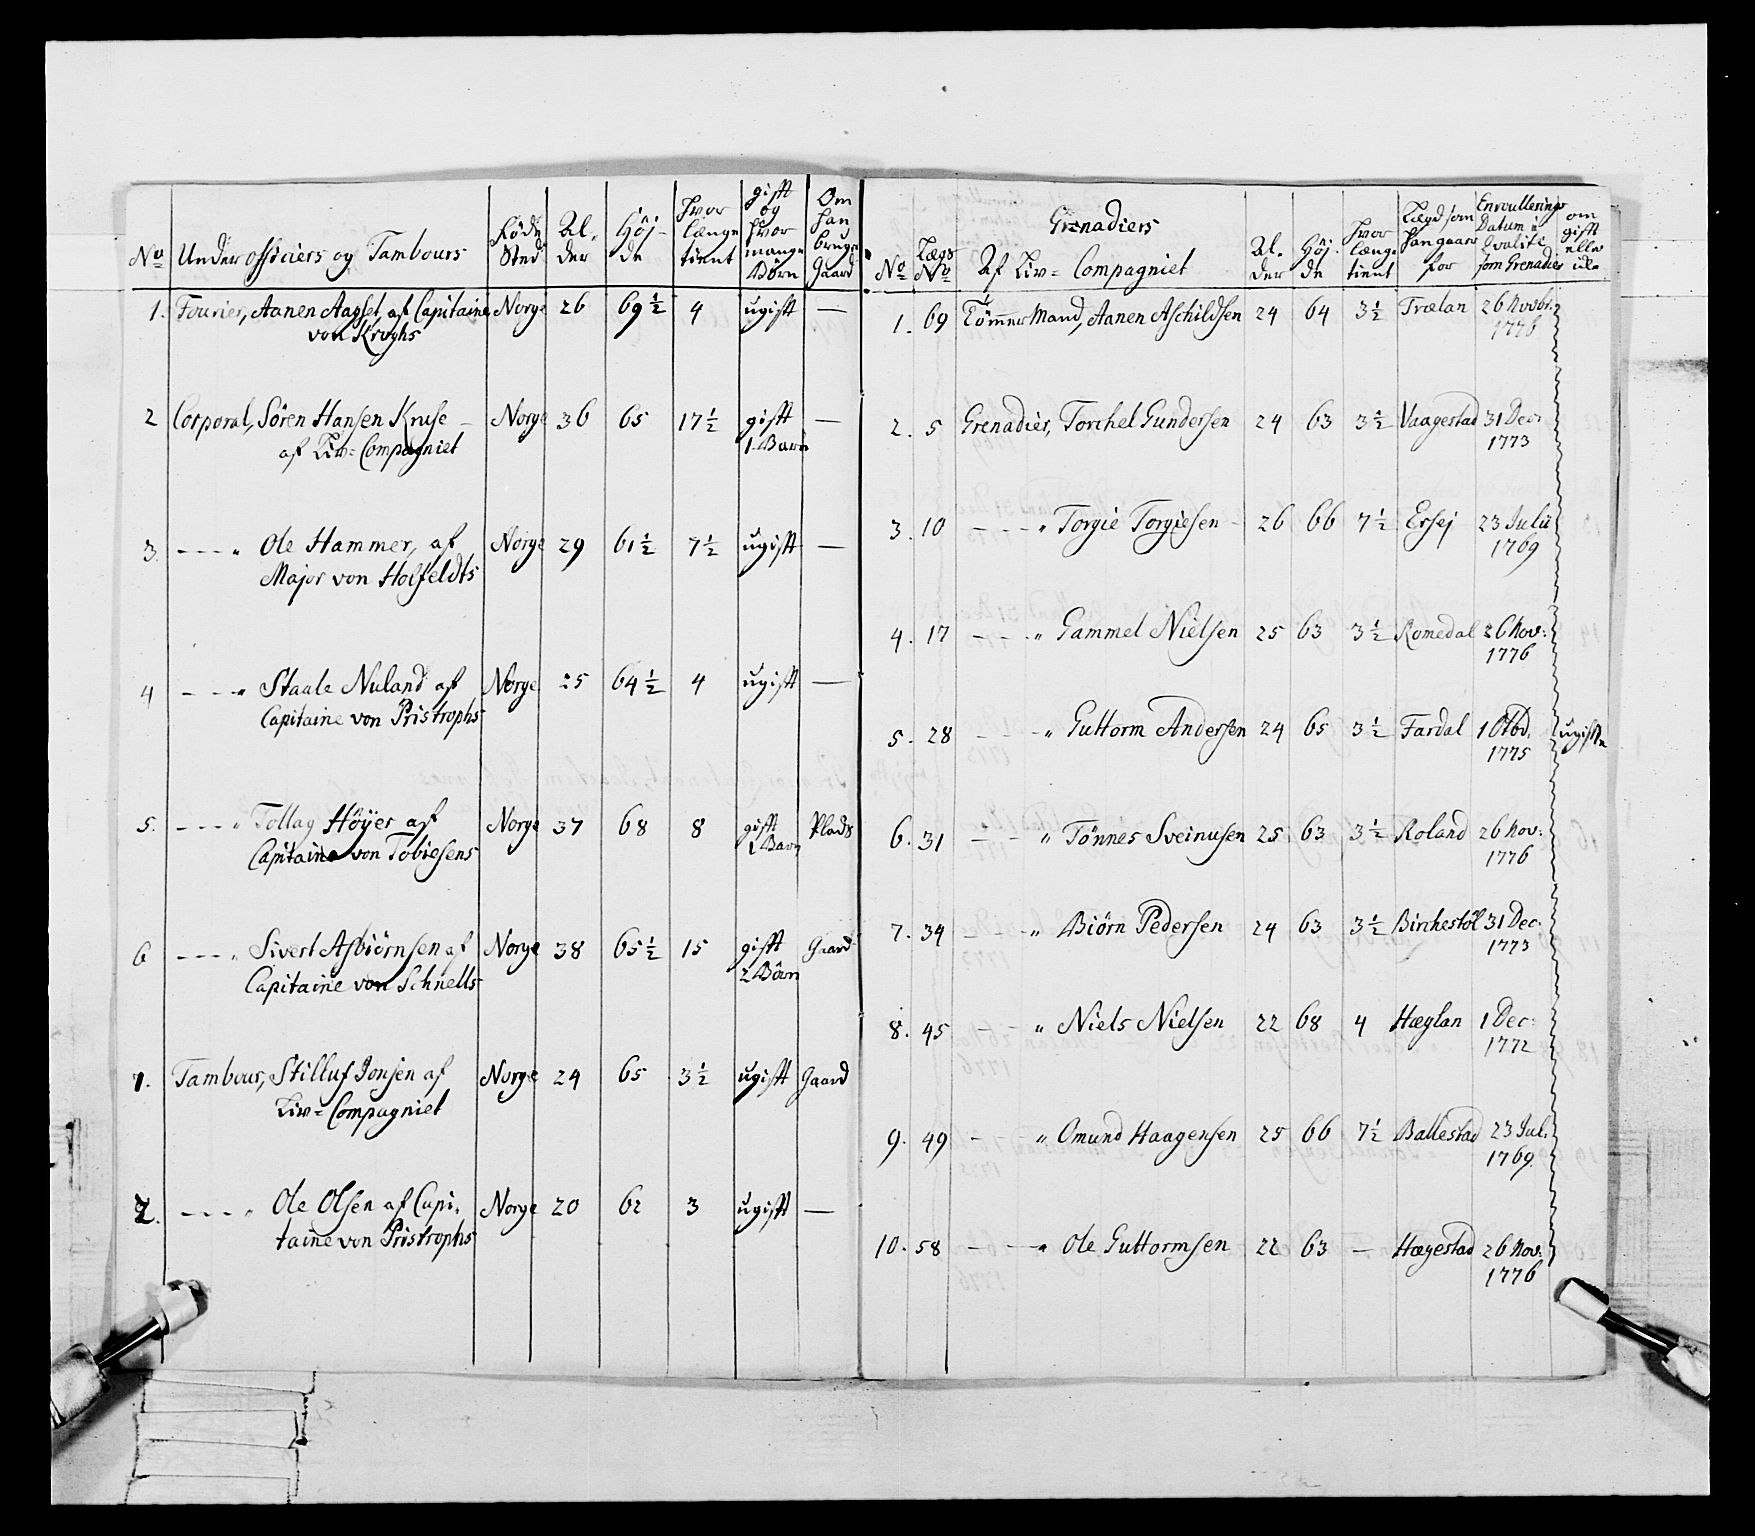 No Under officiers og Tambours Føde Sted Al- der Høj- de Hvor længe tient gift og hvor mange Børn Om han bruger Gaard
1. Fourier, Aanen Aagset, af Capitaine Norge 26 69½ 4 ugift —
von Kroghs
2 Corporal, Sören Hansen Kruse — Norge 36 65 17½ gift —
af Liv=Compagniet 1. Barn
3. — — — " Ole Hammer, af Norge 29 61½ 7½ ugift —
Major von Holfeldts
4 — — — " Staale Nuland af Norge 25 64½ 4 ugift —
Capitaine von Pristrophs
5. — — — " Tollag Höyer af Norge 37 68 8 gift Plads
Capitaine von Tobiesens 1 Barn
6 — — — " Sivert Asbiörnsen af Norge 38 65½ 15 gift Gaard
Capitaine von Schnells 2 Börn
1. Tambour, Stilluf Jonsen af Norge 24 65 3½ ugift Gaard
Liv=Compagniet
2. — — — " Ole Olsen af Capi- Norge 20 62 3 ugift —
taine von Pristrophs
Grenadiers
No Lægs No Af Liv=Compagniet Al- der Høj- de Hvor længe tient Lægd som han gaar for Enroullerings Datum i Qvalite som Grenadier om gift eller ei
1. 69 Tömmer Mand, Aanen Aschildsen 24 64 3½ Trælan 26 Novbr.
1776
2. 5 Grenadier, Torchel Gundersen 24 63 3½ Vaagestad 31 Dec:
1773
3. 10 — — — " Torgie Torgiesen — 26 66 7½ Ersej 23 Julii
1769
4. 17 — — — " Gammel Nielsen 25 63 3½ Romedal 26 Nov:
1776
5. 28 — — — " Guttorm Andersen 24 65 3½ Fardal 1 Octbr. ugifte
1775
6. 31 — — " Tönnes Sveinusen 25 63 3½ Roland 26 Nov:
1776
7. 34 — — — " Biörn Pedersen 24 63 3½ Birchestöl 31 Dec.
1773
8. 45 — — — " Niels Nielsen 22 68 4 Hæglan 1 Dec:
1772
9. 49 — — " Omund Haagensen 25 66 7½ Ballestad 23 Jul.
1769.
10. 58 — — " Ole Guttormsen 22 63 — Hægestad 26 Nov:
1776